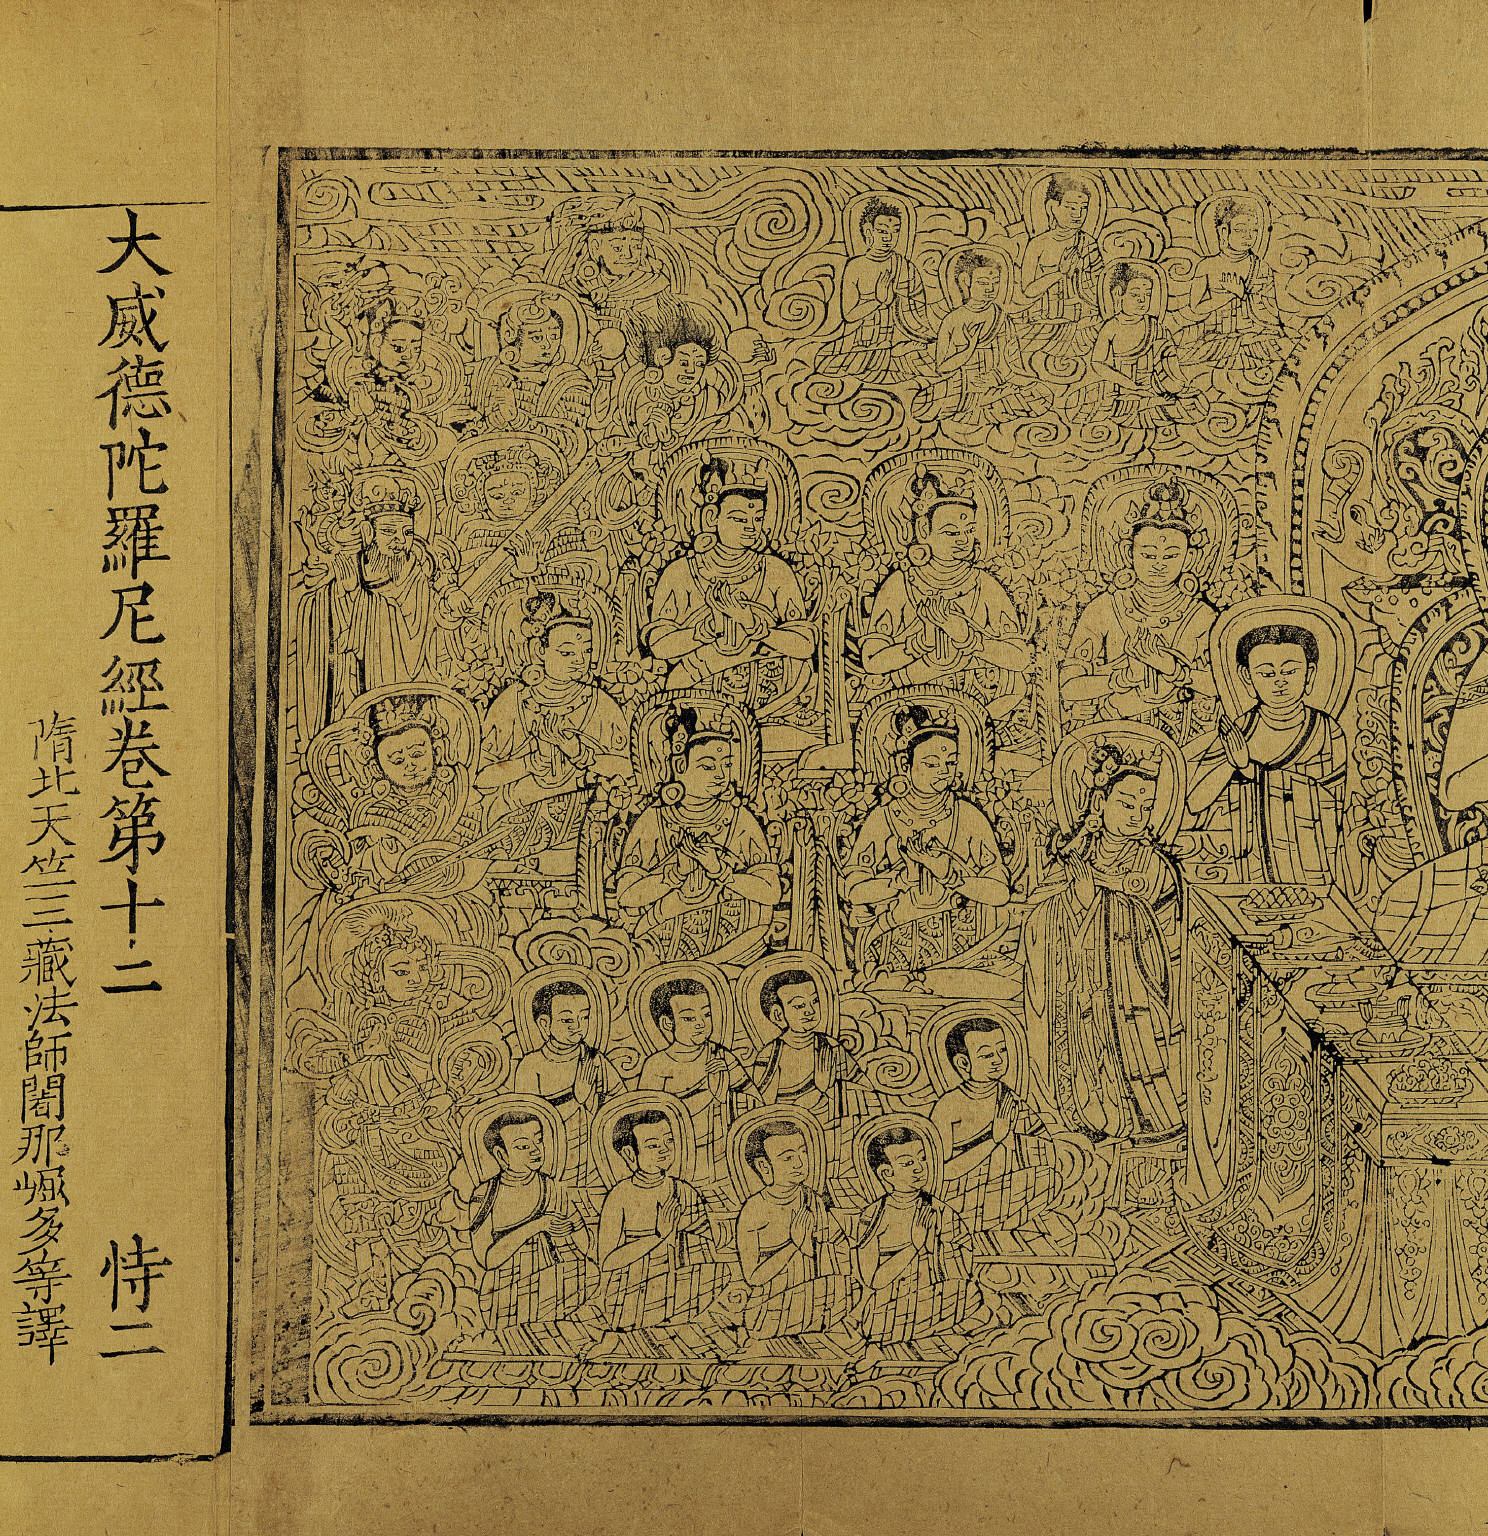 大威德陀羅尼經卷第十二 恃二
隋北天竺三藏法師闍那崛多等譯